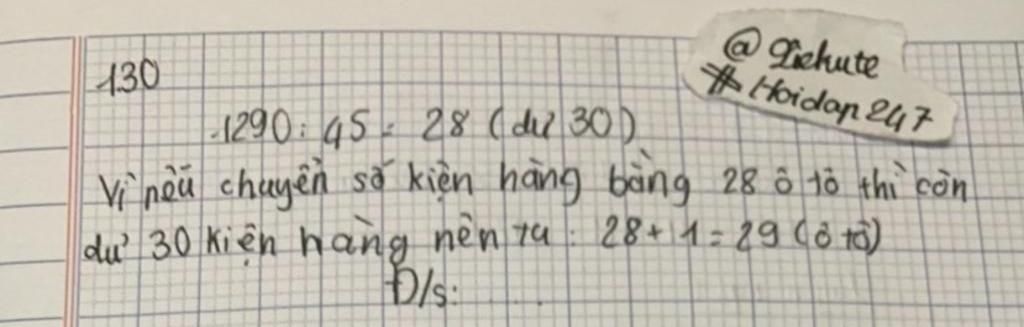 130
@ Giehute
# Hoidap247
1290 : 45 = 28 (dư 30)
Vì nếu chuyển số kiện hàng bằng 28 ô tô thì còn
dư 30 kiện hàng nên ta : 28 + 1 = 29 (ô tô)
Đ/s: ....